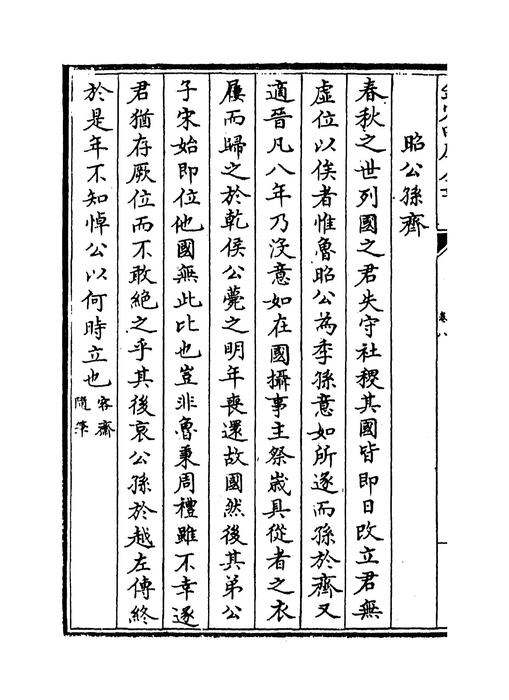 昭公孫齊
春秋之世列國之君失守社稷其國皆即日改立君無
虛位以俟者惟魯昭公為季孫意如所逐而孫於齊又
適晉凡八年乃沒意如在國攝事主祭歲具從者之衣
屨而歸之於乾侯公薨之明年喪還故國然後其弟公
子宋始即位他國無此比也豈非魯秉周禮雖不幸逐
君猶存厥位而不敢絕之乎其後哀公孫於越左傳終
於是年不知悼公以何時立也容齋
隨筆